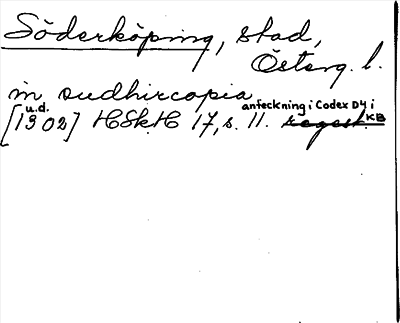 Söderköping, stad,
Österg. l.
in sudhircopia anteckning i Codex D4 i KB
u.d.
[1302] HSkH 17, s. 11. regest.